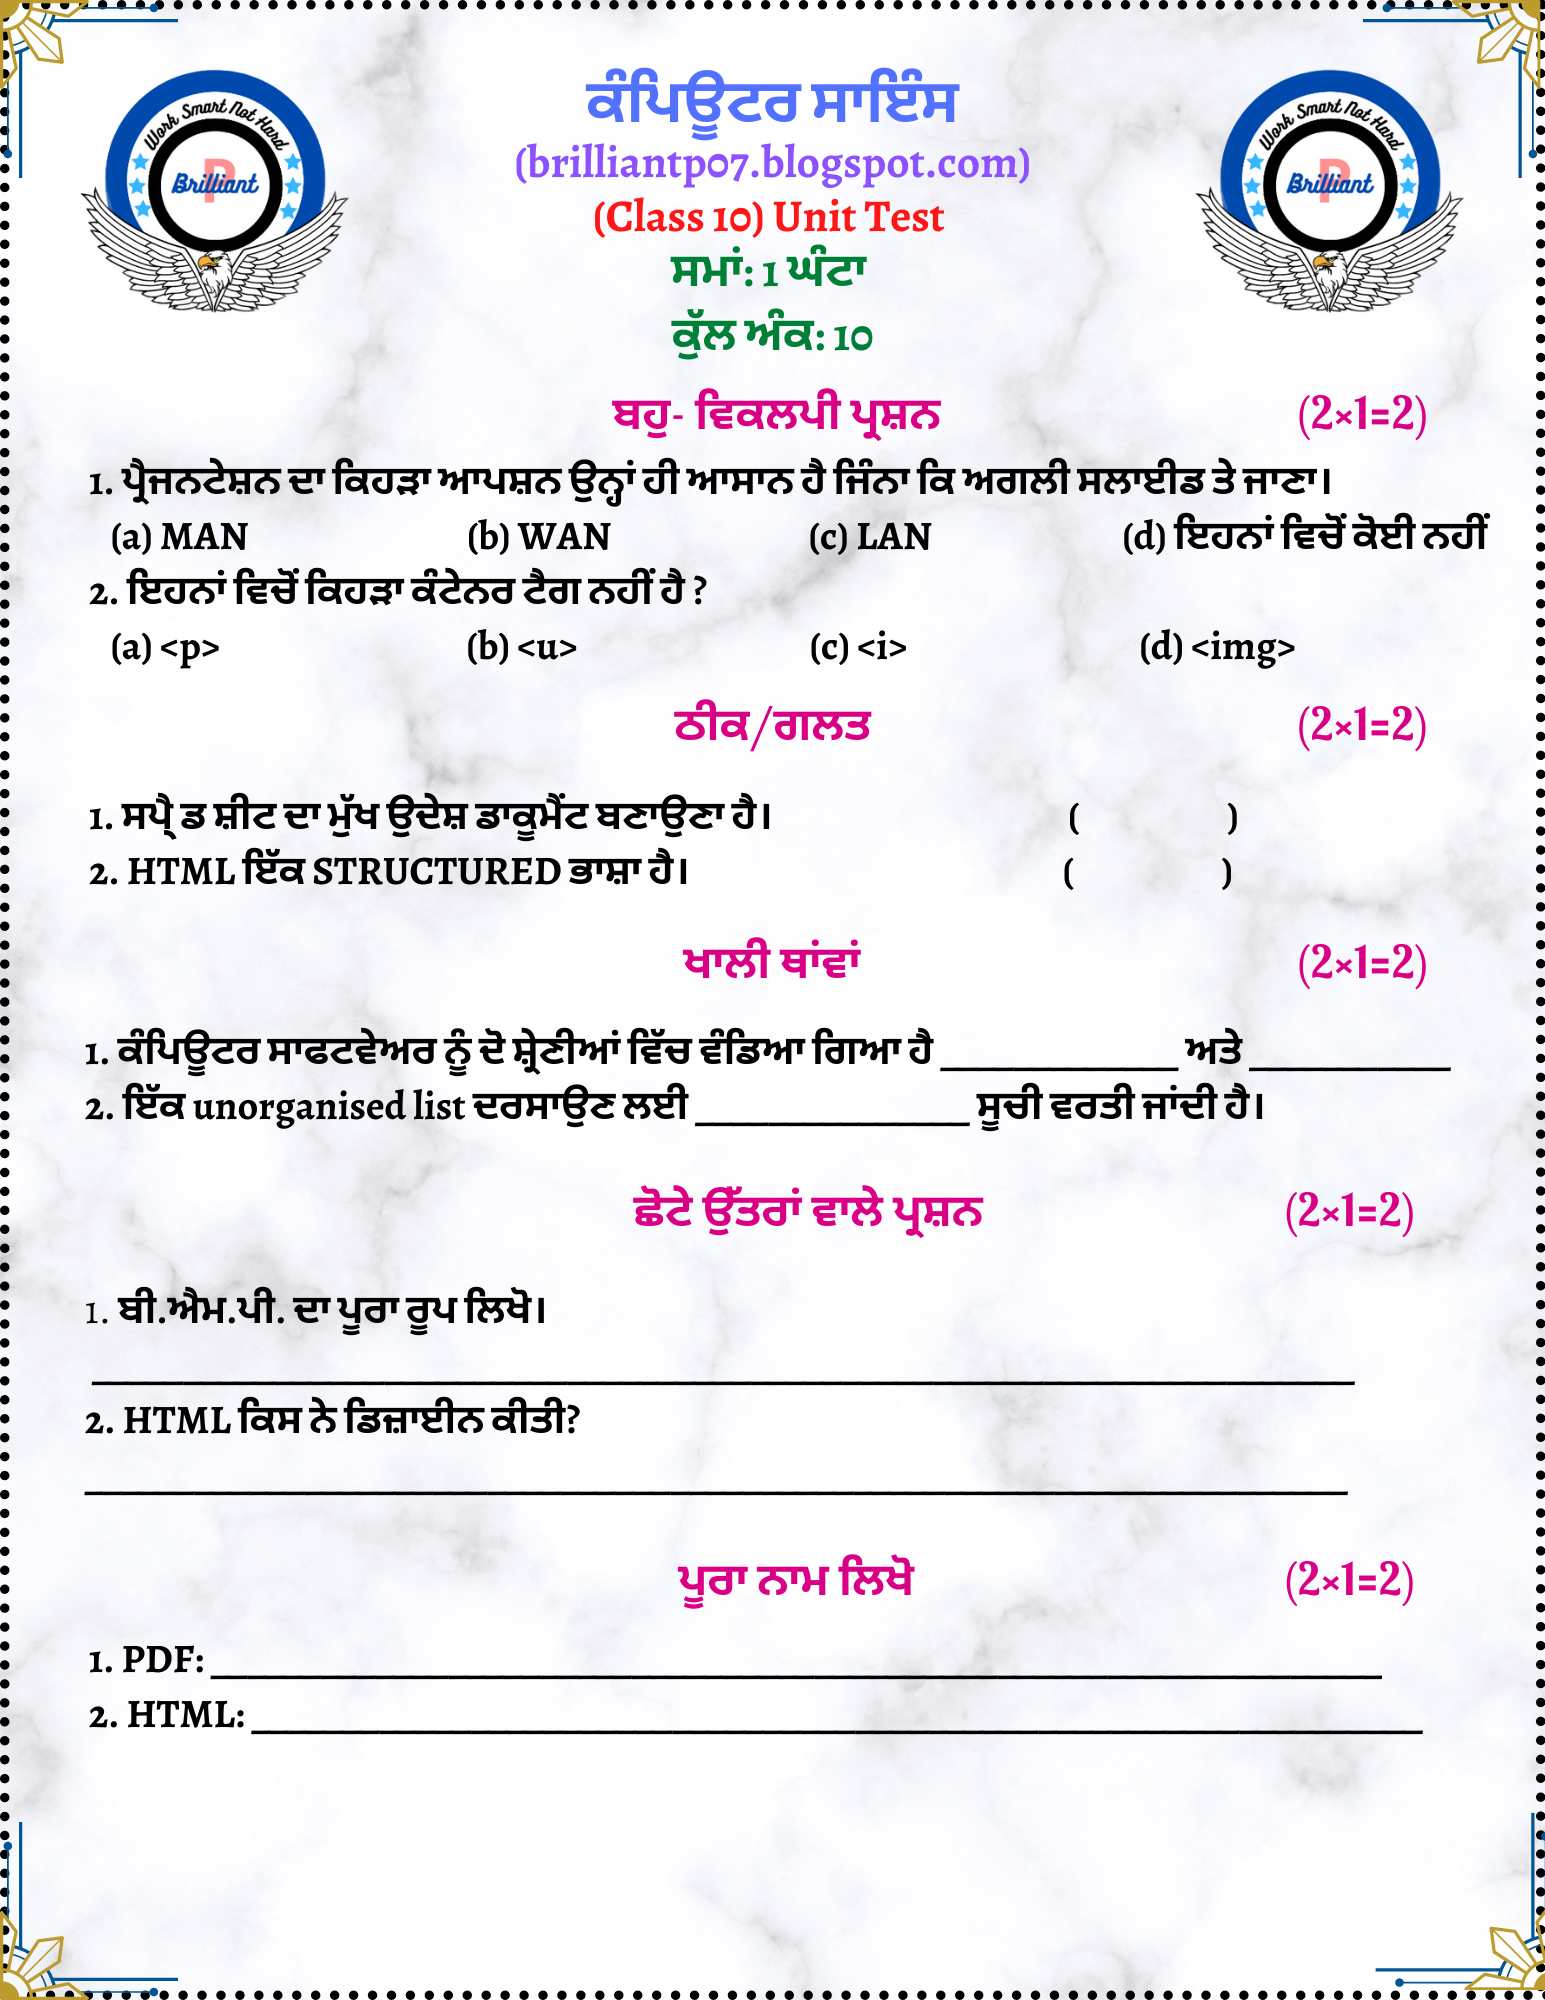 Work Smart Not Hard
P
Brilliant
Work Smart Not Hard
P
Brilliant
ਕੰਪਿਊਟਰ ਸਾਇੰਸ
(brilliantp07.blogspot.com)
(Class 10) Unit Test
ਸਮਾਂ: 1 ਘੰਟਾ
ਕੁੱਲ ਅੰਕ: 10
ਬਹੁ- ਵਿਕਲਪੀ ਪ੍ਰਸ਼ਨ (2×1=2)
1. ਪ੍ਰੈਜਨਟੇਸ਼ਨ ਦਾ ਕਿਹੜਾ ਆਪਸ਼ਨ ਉਨ੍ਹਾਂ ਹੀ ਆਸਾਨ ਹੈ ਜਿੰਨਾ ਕਿ ਅਗਲੀ ਸਲਾਈਡ ਤੇ ਜਾਣਾ।
(a) MAN (b) WAN (c) LAN (d) ਇਹਨਾਂ ਵਿਚੋਂ ਕੋਈ ਨਹੀਂ
2. ਇਹਨਾਂ ਵਿਚੋਂ ਕਿਹੜਾ ਕੰਟੇਨਰ ਟੈਗ ਨਹੀਂ ਹੈ ?
(a) <p> (b) <u> (c) <i> (d) <img>
ਠੀਕ/ਗਲਤ (2×1=2)
1. ਸਪ੍ਰੈ ਡ ਸ਼ੀਟ ਦਾ ਮੁੱਖ ਉਦੇਸ਼ ਡਾਕੂਮੈਂਟ ਬਣਾਉਣਾ ਹੈ। ( )
2. HTML ਇੱਕ STRUCTURED ਭਾਸ਼ਾ ਹੈ। ( )
ਖਾਲੀ ਥਾਂਵਾਂ (2×1=2)
1. ਕੰਪਿਊਟਰ ਸਾਫਟਵੇਅਰ ਨੂੰ ਦੋ ਸ਼੍ਰੇਣੀਆਂ ਵਿੱਚ ਵੰਡਿਆ ਗਿਆ ਹੈ _____________ ਅਤੇ ___________
2. ਇੱਕ unorganised list ਦਰਸਾਉਣ ਲਈ _______________ ਸੂਚੀ ਵਰਤੀ ਜਾਂਦੀ ਹੈ।
ਛੋਟੇ ਉੱਤਰਾਂ ਵਾਲੇ ਪ੍ਰਸ਼ਨ (2×1=2)
1. ਬੀ.ਐਮ.ਪੀ. ਦਾ ਪੂਰਾ ਰੂਪ ਲਿਖੋ।
2. HTML ਕਿਸ ਨੇ ਡਿਜ਼ਾਈਨ ਕੀਤੀ?
ਪੂਰਾ ਨਾਮ ਲਿਖੋ (2×1=2)
1. PDF: ____________________
2. HTML: ____________________